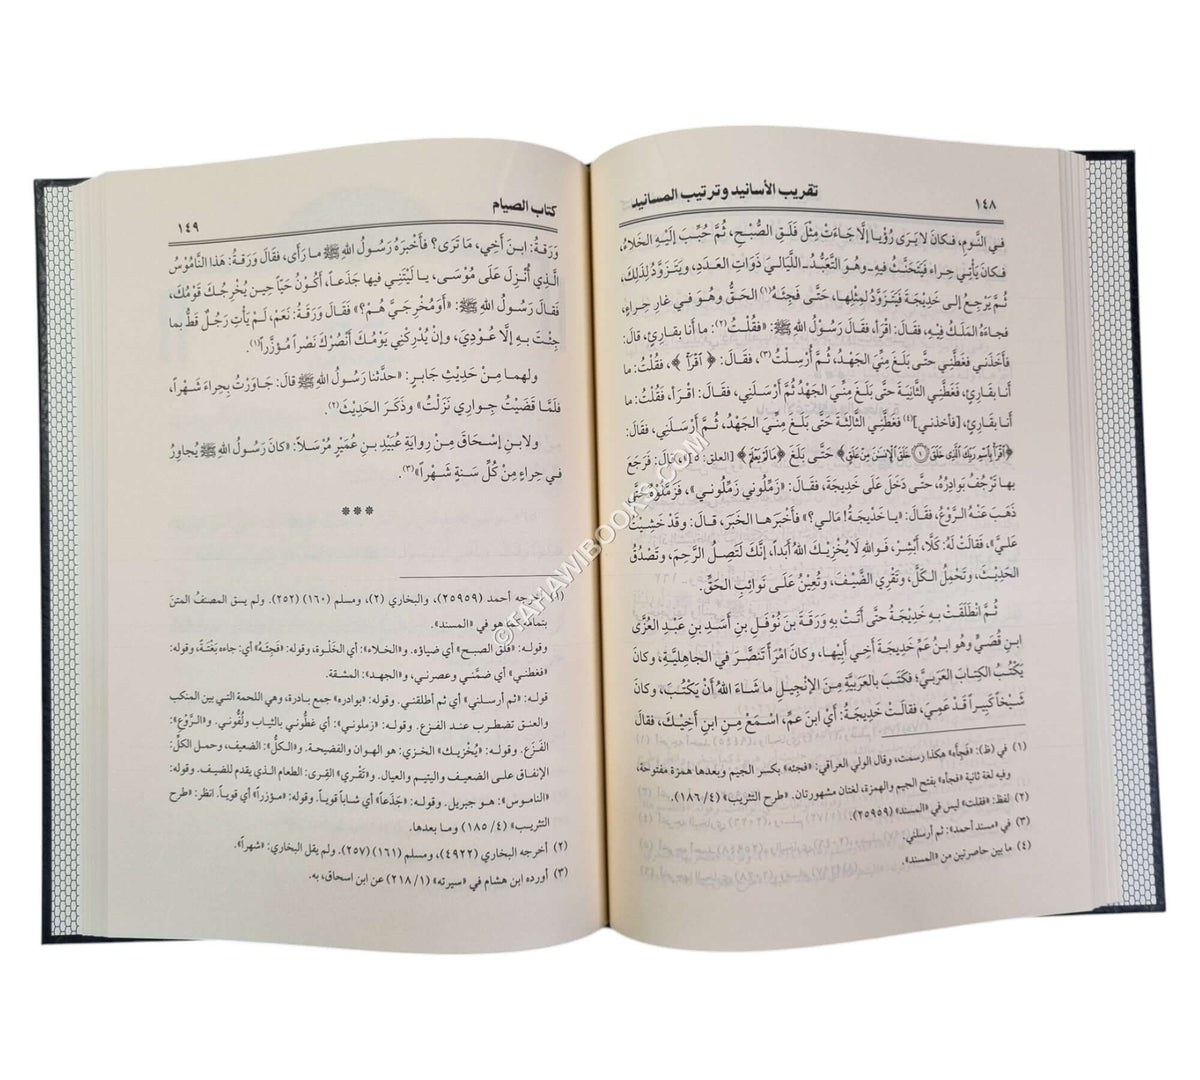 ١٤٨
تقريب الأسانيد وترتيب المسانيد
في النَّومِ، فكانَ لا يَرى رُؤْيا إلَّا جاءَتْ مِثْلَ فَلَقِ الصُّبْحِ، ثُمَّ حُبِّبَ إلَيْهِ الخَلاءُ،
فكانَ يَأْتِي حِراء فَيَتَحَنَّثُ فيهِ - وهُوَ التَّعَبُّدُ - اللَّيَالِيَ ذَواتِ العَدَدِ، ويَتَزَوَّدُ لِذَلِكَ،
ثُمَّ يَرْجِعُ إلى خَدِيجَةَ فَيَتَزَوَّدُ لِمِثْلِها، حَتَّى فَجِئَهُ(١) الحَقُّ وهُوَ في غارِ حِراءٍ،
فجاءَهُ المَلَكُ فِيْهِ، فقالَ: اقْرَأ، فقَالَ رَسُوْلُ اللهِ ﷺ: «فقُلْتُ(٢): ما أنا بقارِئٍ، قالَ:
فأخَذَني فغَطَّنِي حتَّى بَلَغَ مِنِّيَ الجَهْدُ، ثُمَّ أرْسِلْتُ(٣)، فقَالَ: ﴿ اقْرَأْ ﴾، فقُلْتُ: ما
أنا بقارِئٍ، فغَطَّنِي الثَّانِيَةَ حتَّى بَلَغَ مِنِّيَ الجَهْدُ ثُمَّ أرْسَلَنِي، فقَالَ: اقْرَأ، فقُلْتُ: ما
أنا بقارِئٍ، [فأخذني](٤) فغَطَّنِي الثَّالِثَةَ حتَّى بَلَغَ مِنِّيَ الجَهْدُ، ثُمَّ أرْسَلَنِي، فقَالَ:
﴿اقْرَأْ بِاسْمِ رَبِّكَ الَّذِي خَلَقَ ١ خَلَقَ الْإِنسَانَ مِنْ عَلَقٍ﴾ حَتَّى بَلَغَ ﴿مَا لَمْ يَعْلَمْ﴾ [العلق: ٥]» قالَ: فَرَجَعَ
بها تَرْجُفُ بَوادِرُهُ، حتَّى دَخَلَ عَلَى خَدِيجَةَ، فقَالَ: «زَمِّلُوني زَمِّلُوني»، فَزَمَّلُوْهُ حَتَّى
ذَهَبَ عَنْهُ الرَّوْعُ، فقَالَ: «يا خَدِيْجَةُ! مَا لي؟» فأخْبَرَها الخَبَرَ، قالَ: وقَدْ خَشِيْتُ
عَلَيَّ»، فقَالَتْ لَهُ: كَلَّا، أبْشِرْ، فَواللهِ لَا يُخْزِيْكَ اللهُ أبَداً، إنَّكَ لَتَصِلُ الرَّحِمَ، وتَصْدُقُ
الحَدِيْثَ، وتَحْمِلُ الكَلَّ، وتَقْرِي الضَّيْفَ، وتُعِيْنُ عَلَى نَوائِبِ الحَقِّ.
ثُمَّ انْطَلَقَتْ بِهِ خَدِيْجَةُ حتَّى أتَتْ بهِ وَرَقَةَ بنَ نُوْفَلِ بنِ أسَدِ بنِ عَبْدِ العُزَّى
ابنِ قُصَيٍّ وهُوَ ابنُ عَمِّ خَدِيْجَةَ أخِي أبِيْها، وكانَ امْرَأً تَنَصَّرَ في الجاهِلِيَّةِ، وكانَ
يَكْتُبُ الكِتابَ العَرَبِيَّ؛ فكَتَبَ بالعَرَبيَّةِ مِنَ الإنْجِيْلِ ما شاءَ اللهُ أنْ يَكْتُبَ، وكانَ
شَيْخاً كَبِيْراً قَدْ عَمِيَ، فقالَتْ خَدِيْجَةُ: أيْ ابنَ عَمِّ، اسْمَعْ مِنِ ابنِ أخِيْكَ، فقالَ
(١) في (ظ): «فَجِأَه» هكذا رسمت، وقال الولي العراقي: «فجئه» بكسر الجيم وبعدها همزة مفتوحة،
وفيه لغة ثانية «فجأه» بفتح الجيم والهمزة، لغتان مشهورتان. «طرح التثريب» (٤/ ١٨٦).
(٢) لفظ: «فقلت» ليس في «المسند» (٢٥٩٥٩).
(٣) في «مسند أحمد»: ثم أرسلني.
(٤) ما بين حاصرتين من «المسند».
كتاب الصيام
١٤٩
وَرَقةُ: ابنَ أخِي، مَا تَرَى؟ فأخْبَرَهُ رَسُولُ اللهِ ﷺ ما رَأى، فقَالَ وَرَقَةُ: هَذا النَّامُوْسُ
الَّذِي أُنْزِلَ عَلَى مُوْسَى، يا لَيْتَنِي فيها جَذَعاً، أكُوْنُ حَيّاً حِينَ يُخْرِجُكَ قَوْمُكَ،
فقَالَ رَسُولُ اللهِ ﷺ: «أَوَمُخْرِجِيَّ هُمْ؟» فقَالَ وَرَقَةُ: نَعَمْ، لَمْ يَأتِ رَجُلٌ قَطُّ بما
جِئْتَ بِهِ إلَّا عُوْدِيَ، وإنْ يُدْرِكْنِي يَوْمُكَ أنْصُرْكَ نَصْراً مُؤَزَّراً(١).
ولهما مِنْ حَدِيْثِ جَابِرٍ: «حدَّثَنا رَسُولُ اللهِ ﷺ قالَ: جَاوَرْتُ بحِراءَ شَهْراً،
فلَمَّا قَضَيْتُ جِوارِي نَزَلْتُ» وذَكَرَ الحَدِيْثَ(٢).
ولابنِ إسْحَاقَ مِنْ رِوايَةِ عُبَيْدِ بنِ عُمَيْرٍ مُرْسَلاً: «كانَ رَسُولُ اللهِ ﷺ يُجاوِرُ
في حِراءٍ مِنْ كُلِّ سَنةٍ شَهْراً»(٣).
***
(١) أخرجه أحمد (٢٥٩٥٩)، والبخاري (٢)، ومسلم (١٦٠) (٢٥٢). ولم يسق المصنفُ المتنَ
بتمامه كما هو في «المسند».
وقوله: «فَلَق الصبح» أي ضياؤه. و«الخلاء»: أي الخَلْوة، وقوله: «فَجِئَهُ» أي: جاءه بَغْتَةً، وقوله:
«فغطني» أي ضمَّني وعصرني، و«الجهد»: المشقة.
قوله: «ثم أرسلني» أي ثم أطلقني. وقوله: «بوادره» جمع بادرة، وهي اللحمة التي بين المنكب
والعنق تضطرب عند الفزع. وقوله: «زملوني» أي: غطُّوني بالثياب ولُفُّوني. و«الرَّوْع»:
الفَزَع. وقوله: «يُخْزيك» الخزي: هو الهوان والفضيحة. و«الكَلّ»: الضعيف، وحمل الكَلِّ:
الإنفاق على الضعيف واليتيم والعيال. و«تَقْري» القِرى: الطعام الذي يقدم للضيف. وقوله:
«الناموس»: هو جبريل. وقوله: «جَذَعاً» أي شاباً قوياً. وقوله: «مؤزراً» أي قوياً. انظر: «طرح
التثريب» (٤/ ١٨٥) وما بعدها.
(٢) أخرجه البخاري (٤٩٢٢)، ومسلم (١٦١) (٢٥٧). ولم يقل البخاري: «شهراً».
(٣) أورده ابن هشام في «سيرته» (١/ ٢١٨) عن ابن اسحاق، به.
©TAHAWIBOOKS.COM